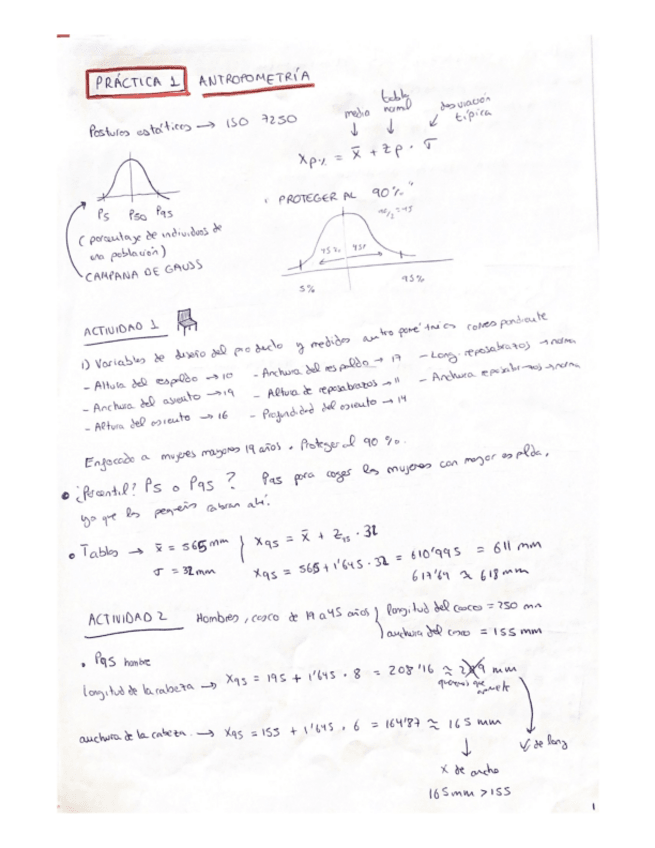 PRÁCTICA 1 ANTROPOMETRÍA
Posturas estáticas → ISO 7250
media tabla normal desviación típica
Xp% = x̄ + Zp · σ
P5 P50 P95
(porcentaje de individuos de
una población)
CAMPANA DE GAUSS
"PROTEGER AL 90%"
90/2 = 45
45% 45%
5% 95%
ACTIVIDAD 1
1) Variables de diseño del producto y medidas antropométricas correspondiente
- Altura del respaldo → 10 - Anchura del respaldo → 17 - Long. reposabrazos → norma
- Anchura del asiento → 19 - Altura de reposabrazos → 11 - Anchura reposabrazos → norma
- Altura del asiento → 16 - Profundidad del asiento → 14
Enfocado a mujeres mayores 19 años. Proteger al 90%.
• ¿Percentil? P5 o P95? P95 para coger las mujeres con mayor espalda,
ya que las pequeñas cabran ahí.
• Tablas → x̄ = 565 mm X95 = x̄ + Z95 · 32
σ = 32 mm X95 = 565 + 1'645 · 32 = 610'995 = 611 mm
617'64 ≈ 618 mm
ACTIVIDAD 2 Hombres, casco de 19 a 45 años longitud del casco = 250 mm
anchura del casco = 155 mm
• P95 hombre
longitud de la cabeza → X95 = 195 + 1'645 · 8 = 208'16 ≈ 209 mm
queremos que
anchura de la cabeza → X95 = 155 + 1'645 · 6 = 164'87 ≈ 165 mm
✓ de long
X de ancho
165 mm > 155
1